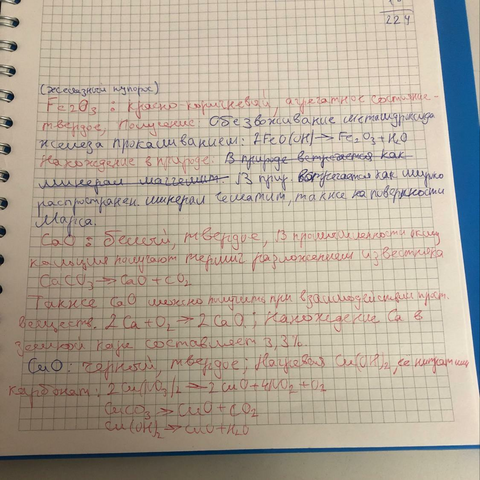 224
(железный купорос)
Fe2O3: красно-коричневый, агрегатное состояние -
твердое, Получение: Обезвоживание метагидроксида
железа прокаливанием: 2FeO(OH) → Fe2O3 + H2O
Нахождение в природе: В природе встречается как
минерал маггемит. В прир. встречается как широко
распространен. минерал гематит, также на поверхности
Марса.
CaO: белый, твердое, В промышленности оксид
кальция получают термич разложением известняка
CaCO3 → CaO + CO2
Также CaO можно получить при взаимодействии прост.
веществ. 2Ca + O2 → 2CaO; Нахождение Ca в
земной коре составляет 3,3%
CuO: черный, твердое; Нагревая Cu(OH)2, ее нитрат или
карбонат: 2Cu(NO3)2 → 2CuO + 4NO2 + O2
CuCO3 → CuO + CO2
Cu(OH)2 → CuO + H2O